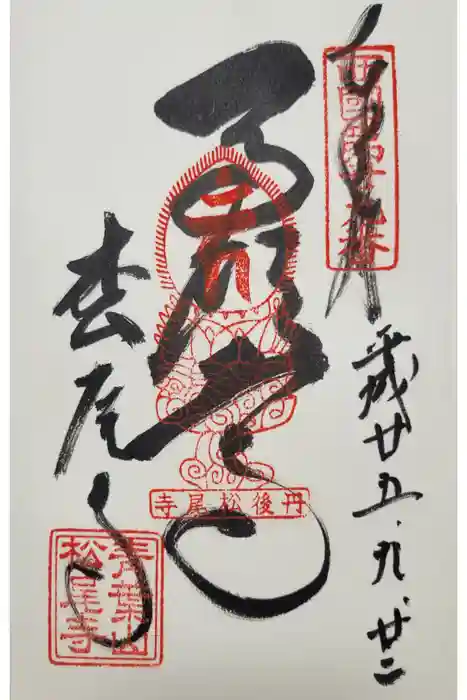 奉拝
西國第廿九番
平成廿五、九、廿二
馬頭尊
丹後松尾寺
松尾寺
青葉山
松尾寺